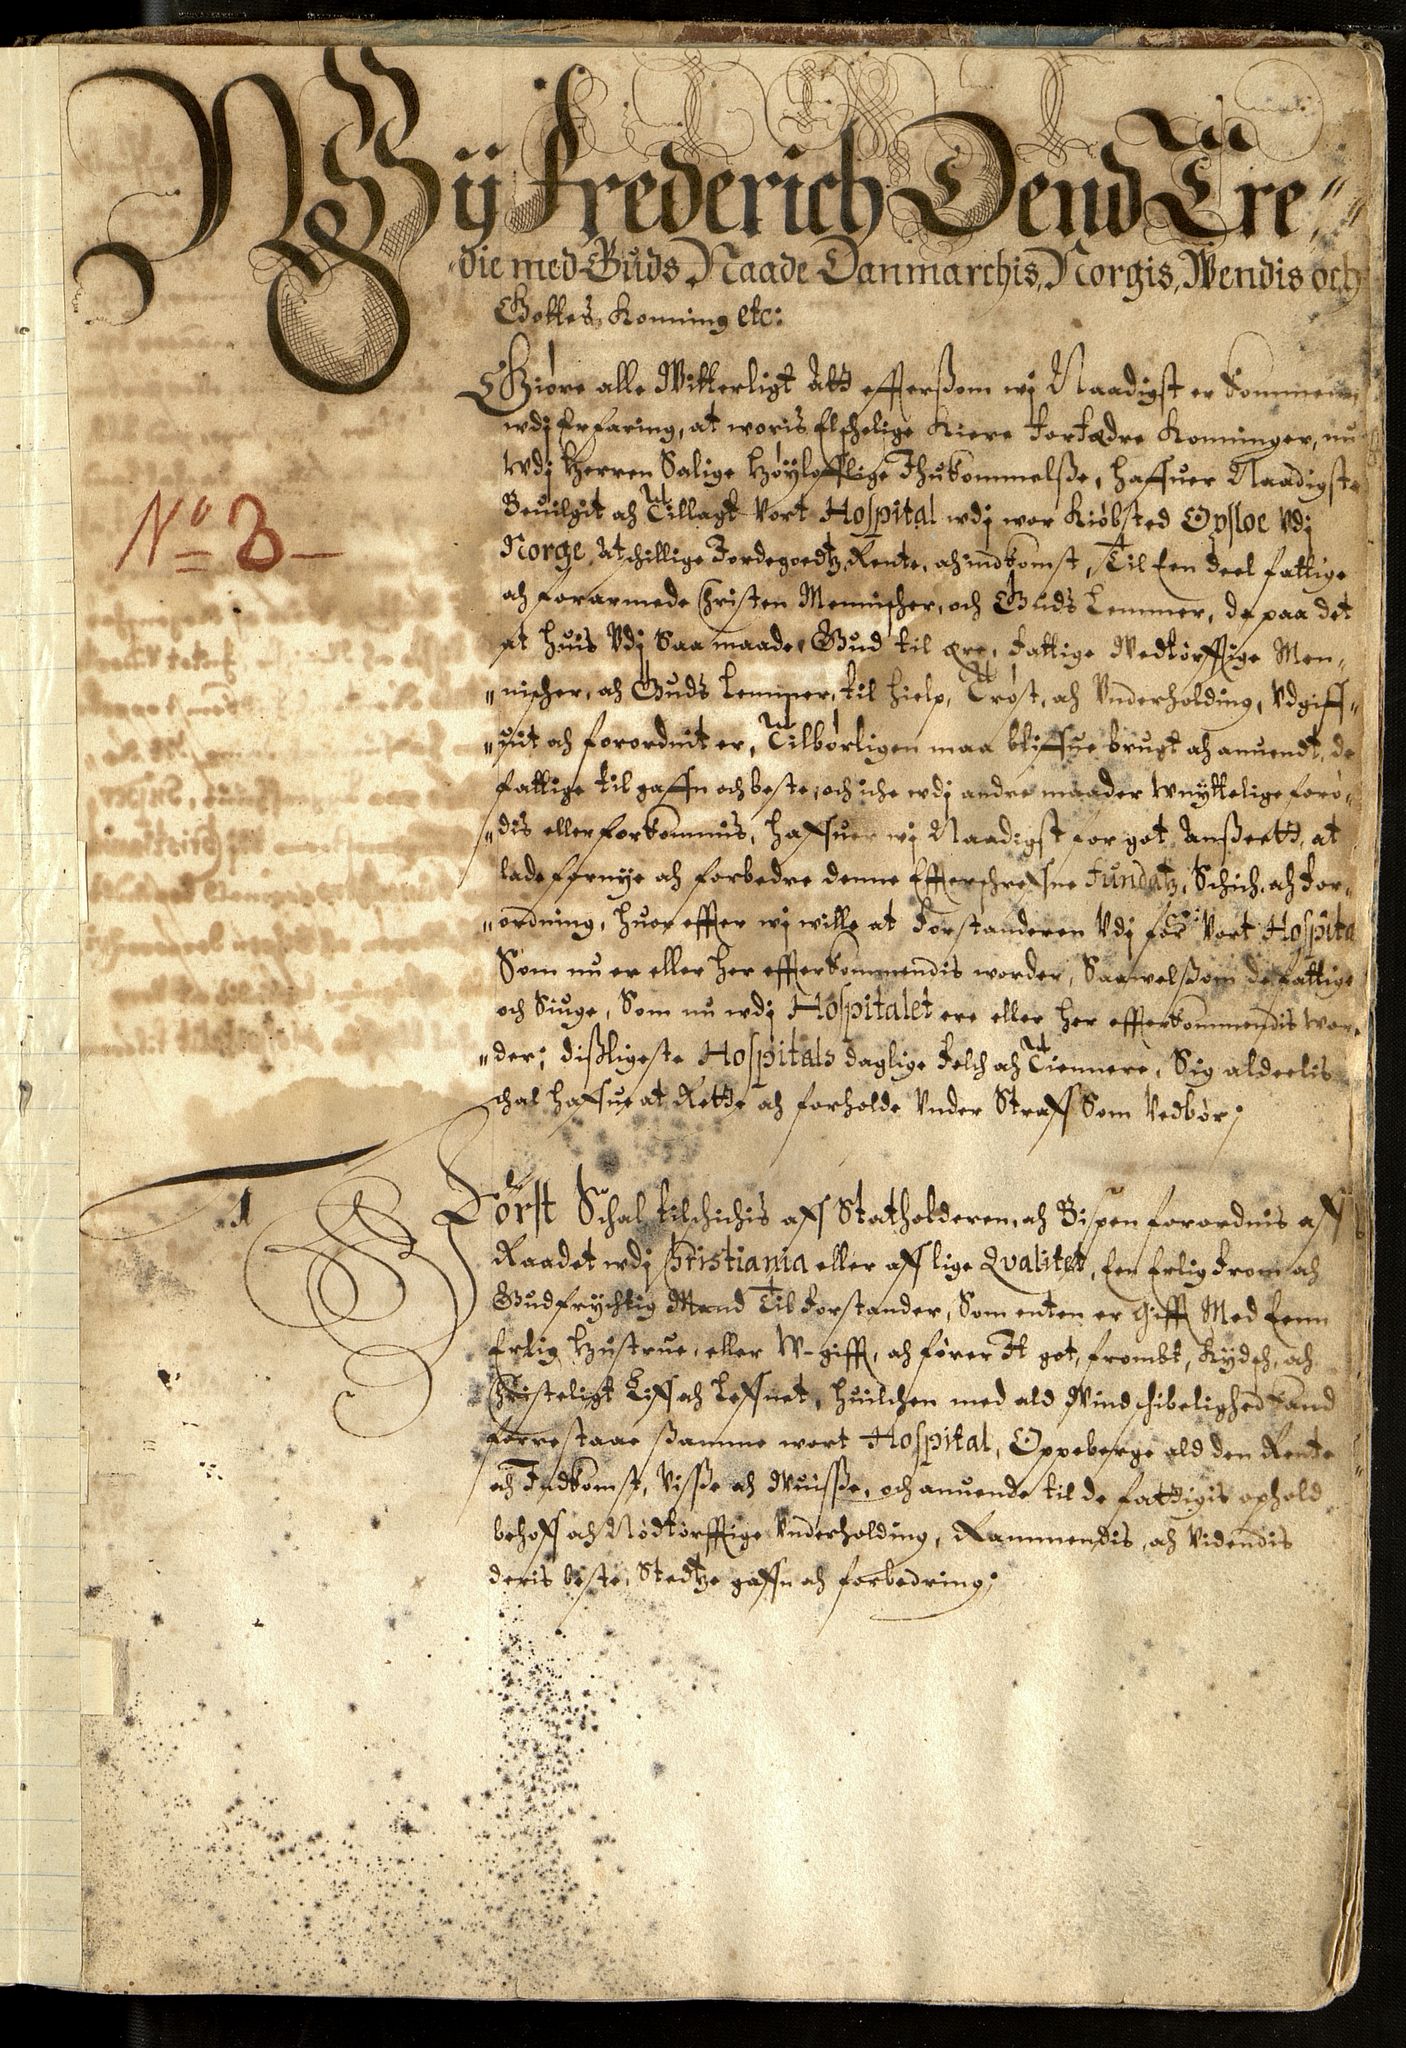 Wij Frederich Dend Tre„
„die med Guds Naade Danmarchis, Norgis, Wendis och
Gottes, Konning etc:
Giøre alle Witterligt Att effterßom wj Naadigst er kommen
wdj Erfaring, at woris Elschelige Kiere Forfædre Konninger, nu
wdj Herren Salige Høylofflige Ihukommelße, haffuer Naadigst
Beuilgit och Tillagt Vort Hospital wdj wor Kiøbsted Opsloe Vdj
Norge Atschillige Jordegoedtz, Rente, och indkomst, Til Een deel fattige
och forarmede Christen Mennischer, och Guds Lemmer, da paa det
at huis Vdj Saa maade, Gud til ære, Fattige Nedtørfftige Men„
„nischer, och Guds Lemmer, til hielp, Trøst, och Vnderholding, Vdgiff„
„uit och forordnit er, Tilbørligen maa bliffue brugt och anuendt, de
fattige til gaffn och beste, och iche wdj andre maader Wnyttelige forø„
„dis eller forkommis, haffuer wj Naadigst for got Anßeett, at
lade fornye och forbedre denne Effterschreffne Fundatz, Schich, och For„
„ordning, huor effter wj wille at Forstanderen Vdj for: Vort Hospita
Som nu er eller her effterkommendis worder, Saawelßom de fattige
och Siuge, Som nu wdj Hospitalet ere eller her effterkommendis wor„
„der; dißligeste Hospitals daglige Folch och Tiennere, Sig aldeelis
schal haffue at Rette och forholde Vnder Straff Som Vedbør;
N° 3
1
Först Schal tilschichis aff Statholderen, och Bispen forordnis aff
Raadet wdj Christiania eller aff lige Qvalitet, Een Erlig From och
Gudfrychtig Mand Til Forstander, Som enten er Gifft Med Eenn
Erlig Hustrue, eller W-gifft, och fører It got, frombt, Kydsch, och
Christeligt Liff och Leffnet, huilchen med ald Windschibelighed kand
forrestaae ßamme wort Hospital, Oppeberge ald den Rente
och Indkomst, Visße och Wuisße, och anuende til de fattigis ophold
behoff och Nødtørfftige Vnderholding, Rammendis, och Videndis
deris beste, Stedtze gaffn och forbedring;